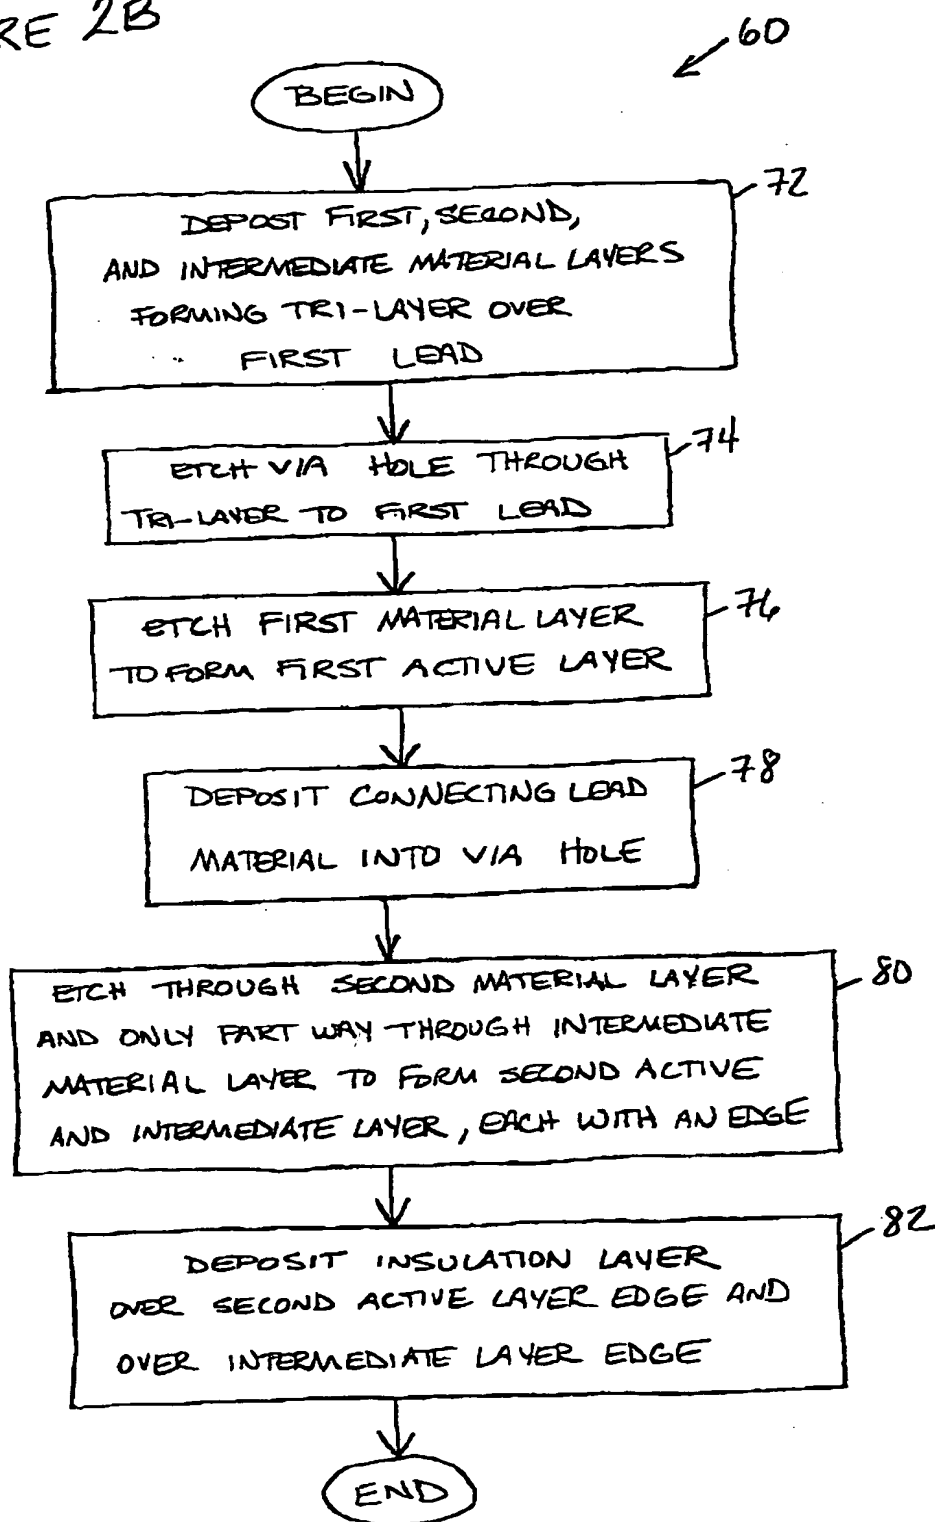 RE 2B
60
BEGIN
72
DEPOST FIRST, SECOND,
AND INTERMEDIATE MATERIAL LAYERS
FORMING TRI-LAYER OVER
FIRST LEAD
74
ETCH VIA HOLE THROUGH
TRI-LAYER TO FIRST LEAD
76
ETCH FIRST MATERIAL LAYER
TO FORM FIRST ACTIVE LAYER
78
DEPOSIT CONNECTING LEAD
MATERIAL INTO VIA HOLE
80
ETCH THROUGH SECOND MATERIAL LAYER
AND ONLY PART WAY THROUGH INTERMEDIATE
MATERIAL LAYER TO FORM SECOND ACTIVE
AND INTERMEDIATE LAYER, EACH WITH AN EDGE
82
DEPOSIT INSULATION LAYER
OVER SECOND ACTIVE LAYER EDGE AND
OVER INTERMEDIATE LAYER EDGE
END